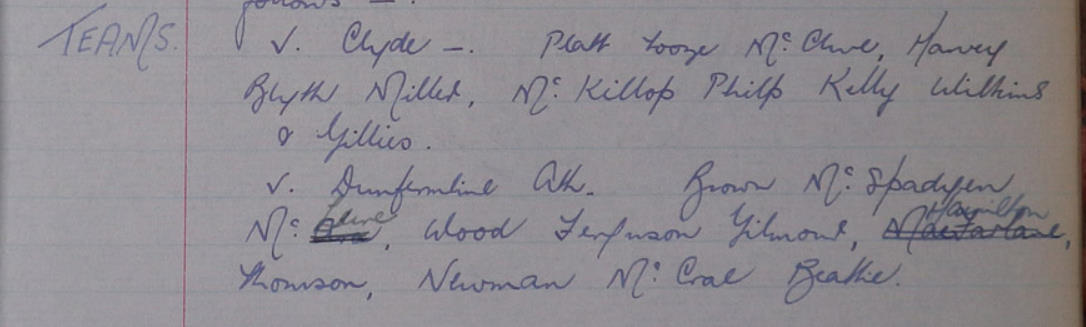 follows -.
TEAMS.
v. Clyde -. Platt Tooze Mc. Clure, Harvey
Blyth Miller, Mc. Killop Philp Kelly Wilkins
& Gillies.
v. Dunfermline Ath. Brown Mc. Spadyen
Mc. Clure, Wood Ferguson Gilmour, Hamilton MacFarlane,
Thomson, Newman Mc. Crae Beattie.